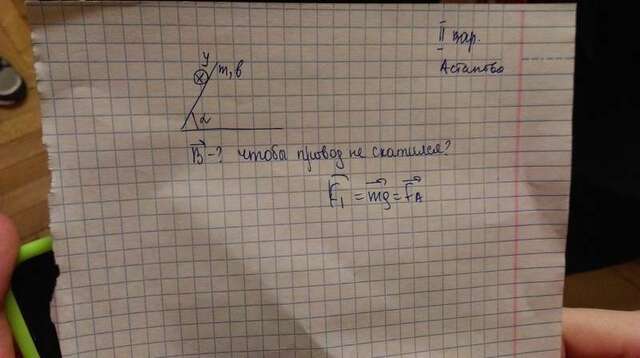 II вар.
Астапова
У
m, в
α
B⃗ - ? чтобы провод не скатился?
F⃗₁ = m⃗g = F⃗A